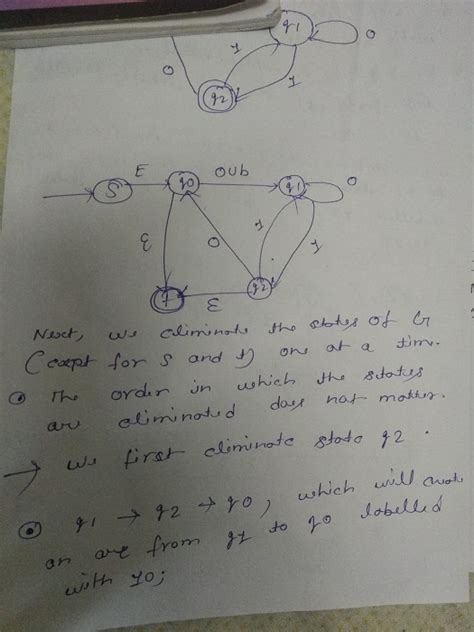 q1
0
1
1
0
q2
E
0U6
0
S
q0
q1
ε
0
1
1
f
ε
q2
Next, we eliminate the states of G
(except for S and f) one at a time.
The order in which the states
are eliminated does not matter.
→ we first eliminate state q2.
q1 → q2 → q0, which will create
an arc from q1 to q0 labelled
with 10;